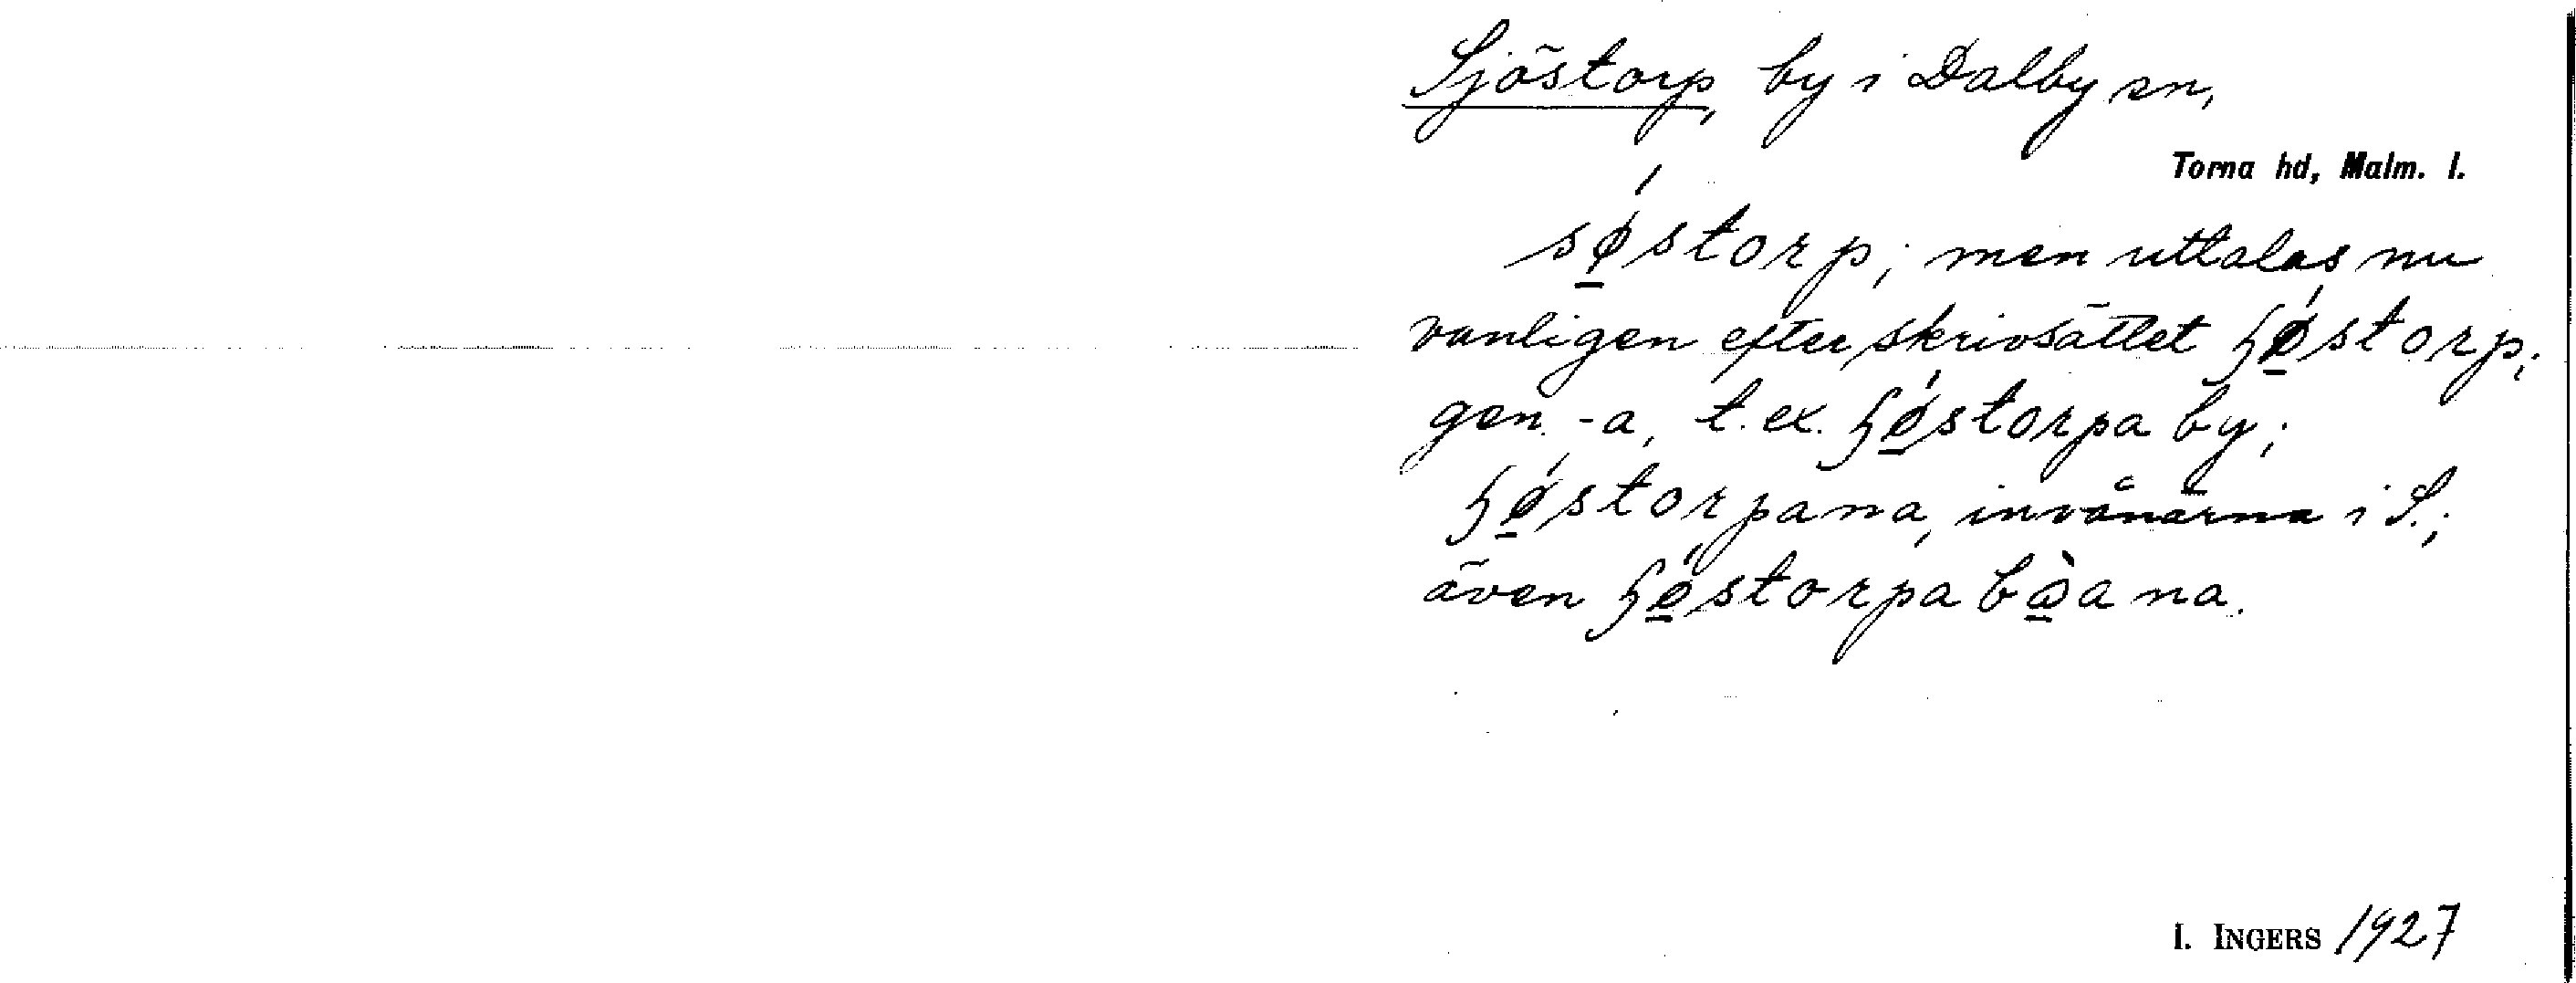 Sjöstorp, by i Dalby sn,
Torna hd, Malm. l.
sǿ̱storp; men uttalas nu
vanligen efter skrivsättet ɧǿ̱storp;
gen. -a, t.ex. ɧǿ̱storpa by;
ɧǿ̱storpana, invånarna i S.;
även ɧǿ̱storpabò̱ana.
I. INGERS 1927